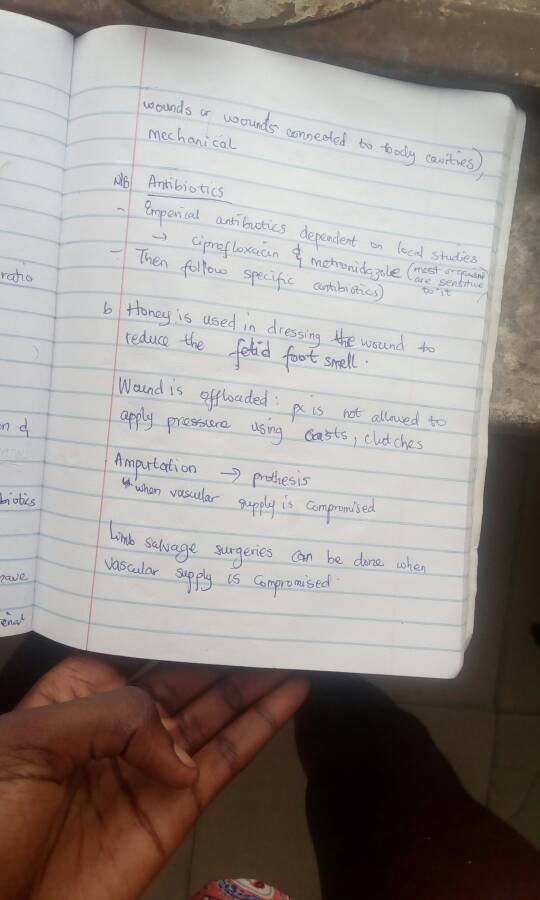 wounds or wounds connected to body cavities)
mechanical
N/B Antibiotics
- Emperical antibiotics dependent on local studies
→ ciprofloxacin & metronidazole (most organisms are sensitive to it)
- Then follow specific antibiotics)
b Honey is used in dressing the wound to
reduce the fetid foot smell.
Wound is offloaded: px is not allowed to
apply pressure using casts, clutches
Amputation → prothesis
↳ when vascular supply is compromised
Limb salvage surgeries can be done when
vascular supply is compromised.
ratio
)
n d
biotics
have
enal